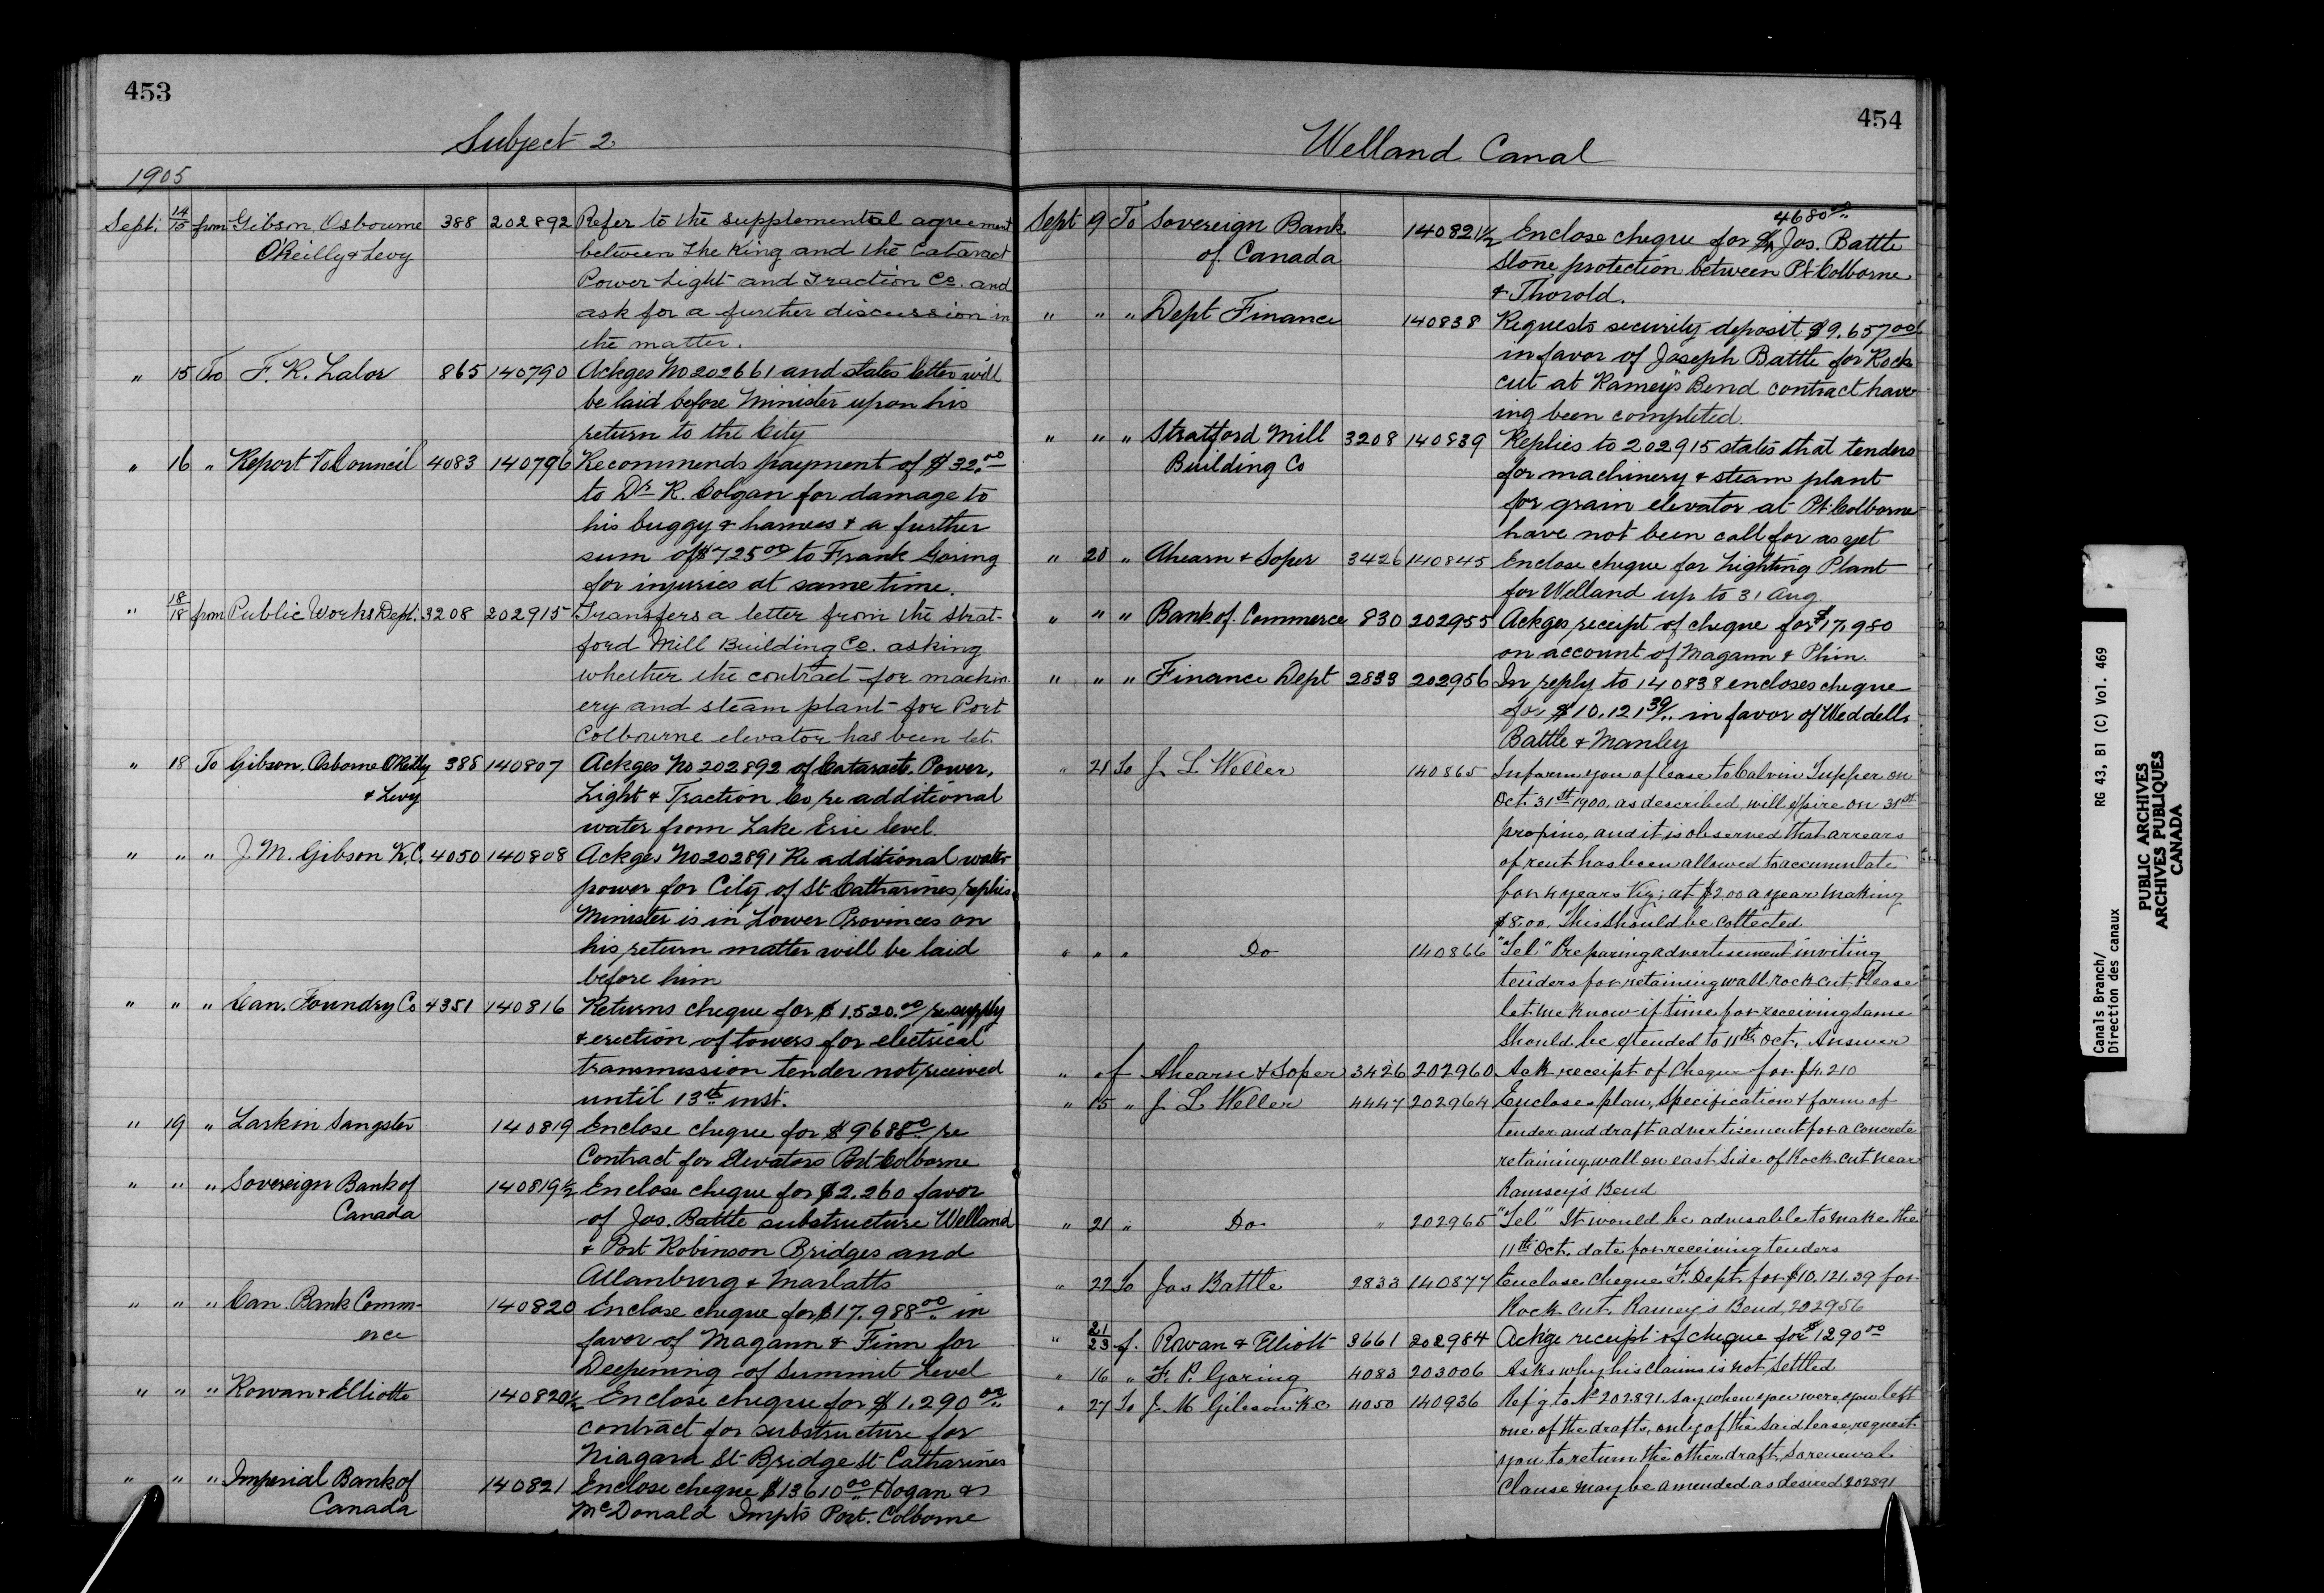 453
Subject 2.
1905
Sept. 14/15 from Gibson, Osbourne 388 202892 Refer to the supplemental agreement
O'Reilly & Levy between the King and the Cataract
Power Light and Traction Co. and
ask for a further discussion in
the matter.
" 15 To F. R. Lalor 865 140790 Ackges No 202661 and states letter will
be laid before Minister upon his
return to the City
" 16 " Report To Council 4083 140796 Recommends payment of $32.00
to Dr R. Colgan for damage to
his buggy & harness & a further
sum of $725 00 to Frank Goring
for injuries at same time.
" 18/18 from Public Works Dept. 3208 202915 Transfers a letter from the Strat-
ford Mill Building Co. asking
whether the contract for machin
ery and steam plant for Port
Colbourne elevator has been let.
" 18 To Gibson, Osborne O'Reilly 388 140807 Ackges No 202892 of Cataract Power,
& Levy Light & Traction Co re additional
water from Lake Erie level.
" " " J. M. Gibson K.C. 4050 140808 Ackges No 202891 Re additional water
power for City of St Catharines, replies
Minister is in Lower Provinces on
his return matter will be laid
before him
" " " Can. Foundry Co 4351 140816 Returns cheque for $1.520.00 re supply
& erection of towers for electrical
transmission tender not received
until 13th inst.
" 19 " Larkin Sangster 140819 Enclose cheque for $9688 00 re
Contract for Elevators Port Colborne
" " " Sovereign Bank of 140819½ Enclose cheque for $2.260 favor
Canada of Jos. Battle substructure Welland
& Port Robinson Bridges and
Allanburg & Marlatts
" " " Can. Bank Comm- 140820 Enclose cheque for $17.988 00 in
erce favor of Magann & Finn for
Deepening of Summit Level
" " " Rowan & Elliotte 140820½ Enclose cheque for $1.290 00
contract for substructure for
Niagara St. Bridge St. Catharines
" " " Imperial Bank of 140821 Enclose cheque $13610 00 Hogan &
Canada McDonald Impts Port. Colborne
454
Welland Canal
4680 00
Sept 19 To Sovereign Bank 140821½ Enclose cheque for $ Jos. Battle
of Canada Stone protection between Pt Colborne
& Thorold.
" " " Dept Finance 140838 Requests security deposit $9.657 00
in favor of Joseph Battle for Rock
cut at Ramey's Bend contract hav
ing been completed.
" " " Stratford Mill 3208 140839 Replies to 202915 states that tenders
Building Co for machinery & steam plant
for grain elevator at Pt Colborne
have not been call for as yet
" 20 " Ahearn & Soper 3426 140845 Enclose cheque for Lighting Plant
for Welland up to 31 Aug.
" " " Bank of Commerce 830 202955 Ackges receipt of cheque for $17,980
on account of Magann & Phin.
" " " Finance Dept 2833 202956 In reply to 140838 encloses cheque
for $10.121 39 in favor of Weddell,
Battle & Manley
" 21 To J. L. Weller 140865 Inform you of lease to Calvin Tupper on
Oct. 31st 1900, as described, will expire on 31st
proximo, and it is observed that arrears
of rent has been allowed to accumulate
for 4 years Viz; at $2.00 a year making
$8.00. This should be collected
" " " Do 140866 "Tel" Preparing advertisement inviting
tenders for retaining wall, rock cut. Please
let me know if time for receiving same
should be extended to 11th Oct. Answer
" " f Ahearn & Soper 3426 202960 Ack receipt of Cheque for $4.210
" 15 " J. L. Weller 4447 202964 Encloses plan, Specification & form of
tender and draft advertisement for a concrete
retaining wall on east Side of Rock cut near
Ramsey's Bend
" 21 " Do " 202965 "Tel" It would be advisable to make the
11th Oct. date for receiving tenders
" 22 To Jos Battle 2833 140877 Enclose cheque F. Dept. for $10.121.39 for
Rock cut, Ramey's Bend 202956
" 21/23 f. Rowan & Elliott 3661 202984 Ackge receipt of cheque for $1290 00
" 16 " F. P. Goring 4083 203006 Asks why his claims is not settled
" 27 To J. M Gibson K C 4050 140936 Ref'g to No 202891. Say when you were, you left
one of the drafts, only of the said lease, request
you to return the other draft, so renewal
Clause may be amended as desired 202891
Canals Branch/ RG 43, B1 (C) Vol. 469
Direction des canaux
PUBLIC ARCHIVES
ARCHIVES PUBLIQUES
CANADA